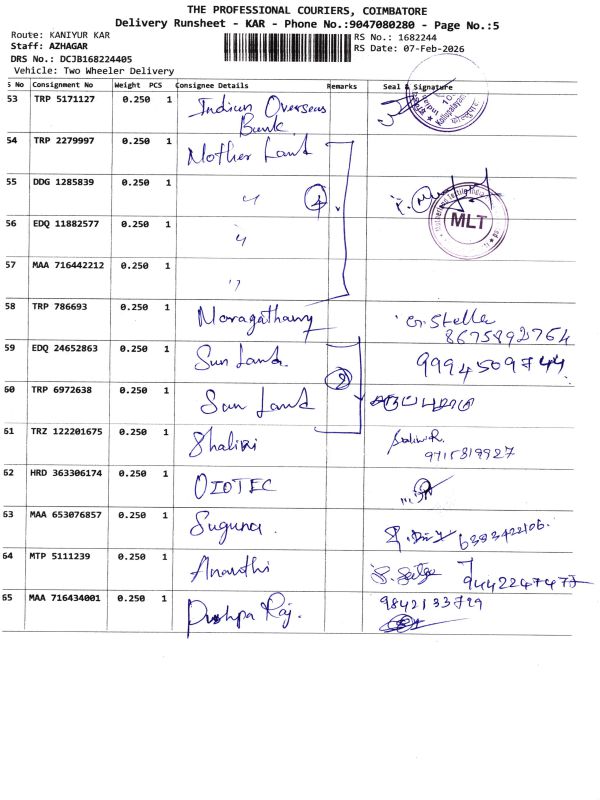 THE PROFESSIONAL COURIERS, COIMBATORE
Delivery Runsheet - KAR - Phone No.:9047080280 - Page No.:5
Route: KANIYUR KAR
RS No.: 1682244
Staff: AZHAGAR
RS Date: 07-Feb-2026
DRS No.: DCJB168224405
Vehicle: Two Wheeler Delivery
S No Consignment No Weight PCS Consignee Details Remarks Seal & Signature
53 TRP 5171127 0.250 1 Indian Overseas
Bank
54 TRP 2279997 0.250 1 Mother Land
55 DDG 1285839 0.250 1 〃 4
MLT
56 EDQ 11882577 0.250 1 〃
57 MAA 716442212 0.250 1 〃
58 TRP 786693 0.250 1 Maragathamy G. Stella
8675892764
59 EDQ 24652863 0.250 1 Sun Land. 9994509744
60 TRP 6972638 0.250 1 Sun Land
61 TRZ 122201675 0.250 1 Shalini Shalini R.
9715819927
62 HRD 363306174 0.250 1 OZOTEC
63 MAA 653076857 0.250 1 Suguna. 6383422106.
64 MTP 5111239 0.250 1 Ananthi
9442247477
65 MAA 716434001 0.250 1 Pushpa Raj. 9842133729